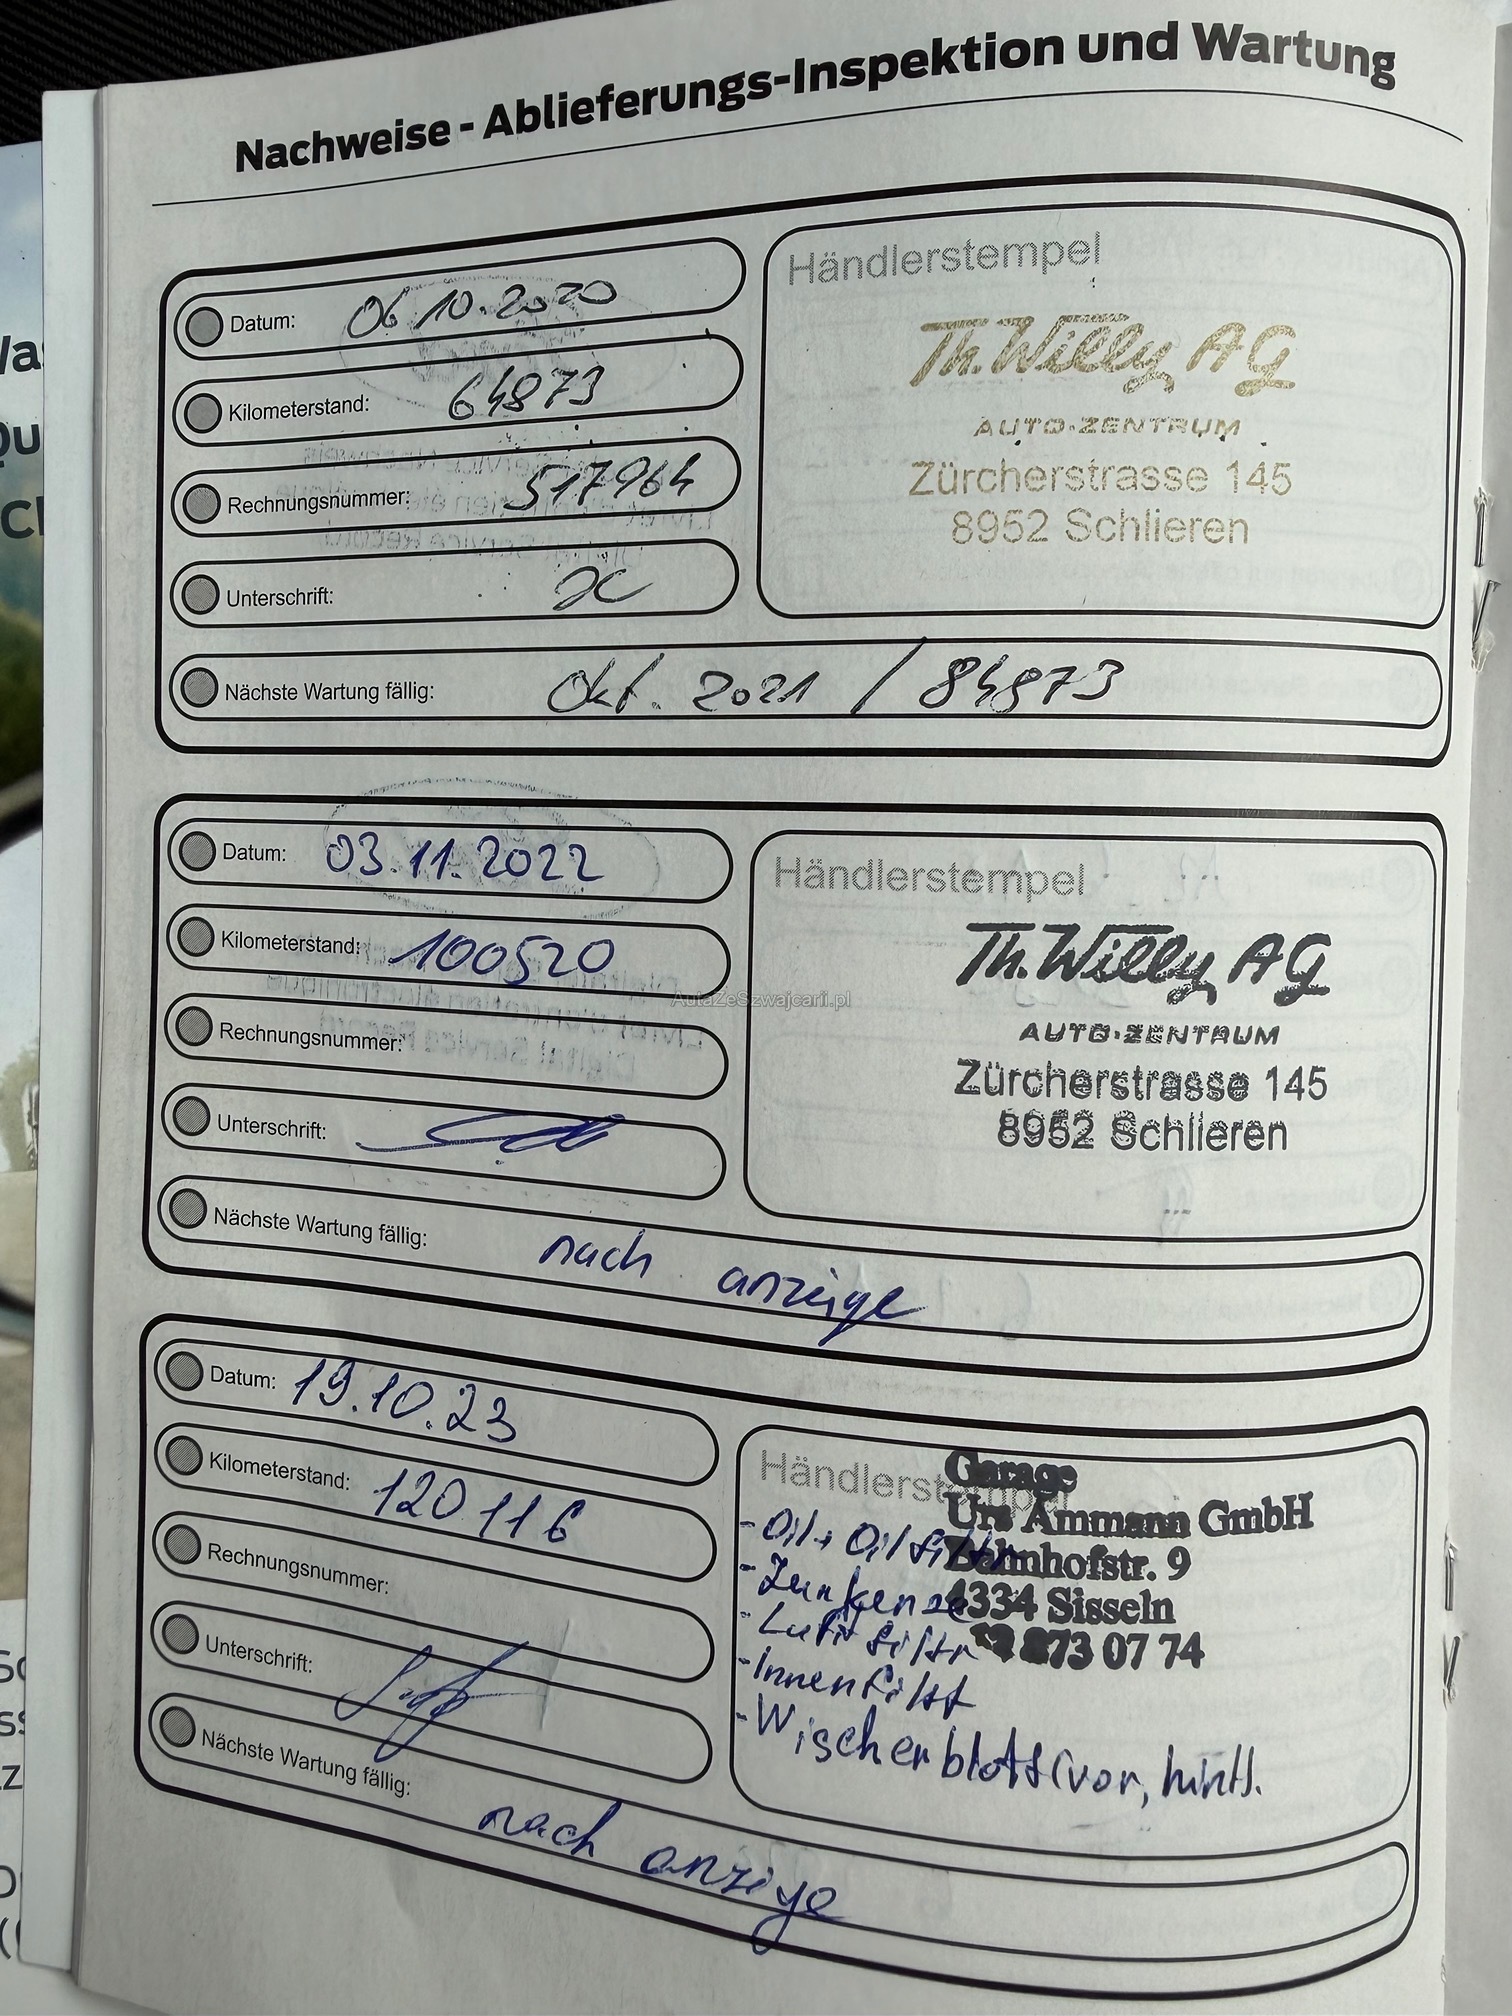 Nachweise - Ablieferungs-Inspektion und Wartung
Händlerstempel
Datum: 06 10.2020
Kilometerstand: 64873
Rechnungsnummer: 517964
Unterschrift:
Th. Willy AG
AUTO-ZENTRUM
Zürcherstrasse 145
8952 Schlieren
Nächste Wartung fällig: Okt. 2021 / 84873
Datum: 03.11.2022
Kilometerstand: 100520
Rechnungsnummer:
Unterschrift:
Händlerstempel
Th. Willy AG
AUTO-ZENTRUM
Zürcherstrasse 145
8952 Schlieren
AutaZeSzwajcarii.pl
Nächste Wartung fällig: nach anzeige
Datum: 19.10.23
Kilometerstand: 120116
Rechnungsnummer:
Unterschrift:
Händlerstempel
Garage
Urs Ammann GmbH
Bahnhofstr. 9
4334 Sisseln
873 07 74
- Oil + Oilfiltr
- Zunkenze
- Luftfiltr
- Innenfiltt
- Wischerblatt (vor, hintl.
Nächste Wartung fällig: nach anzige